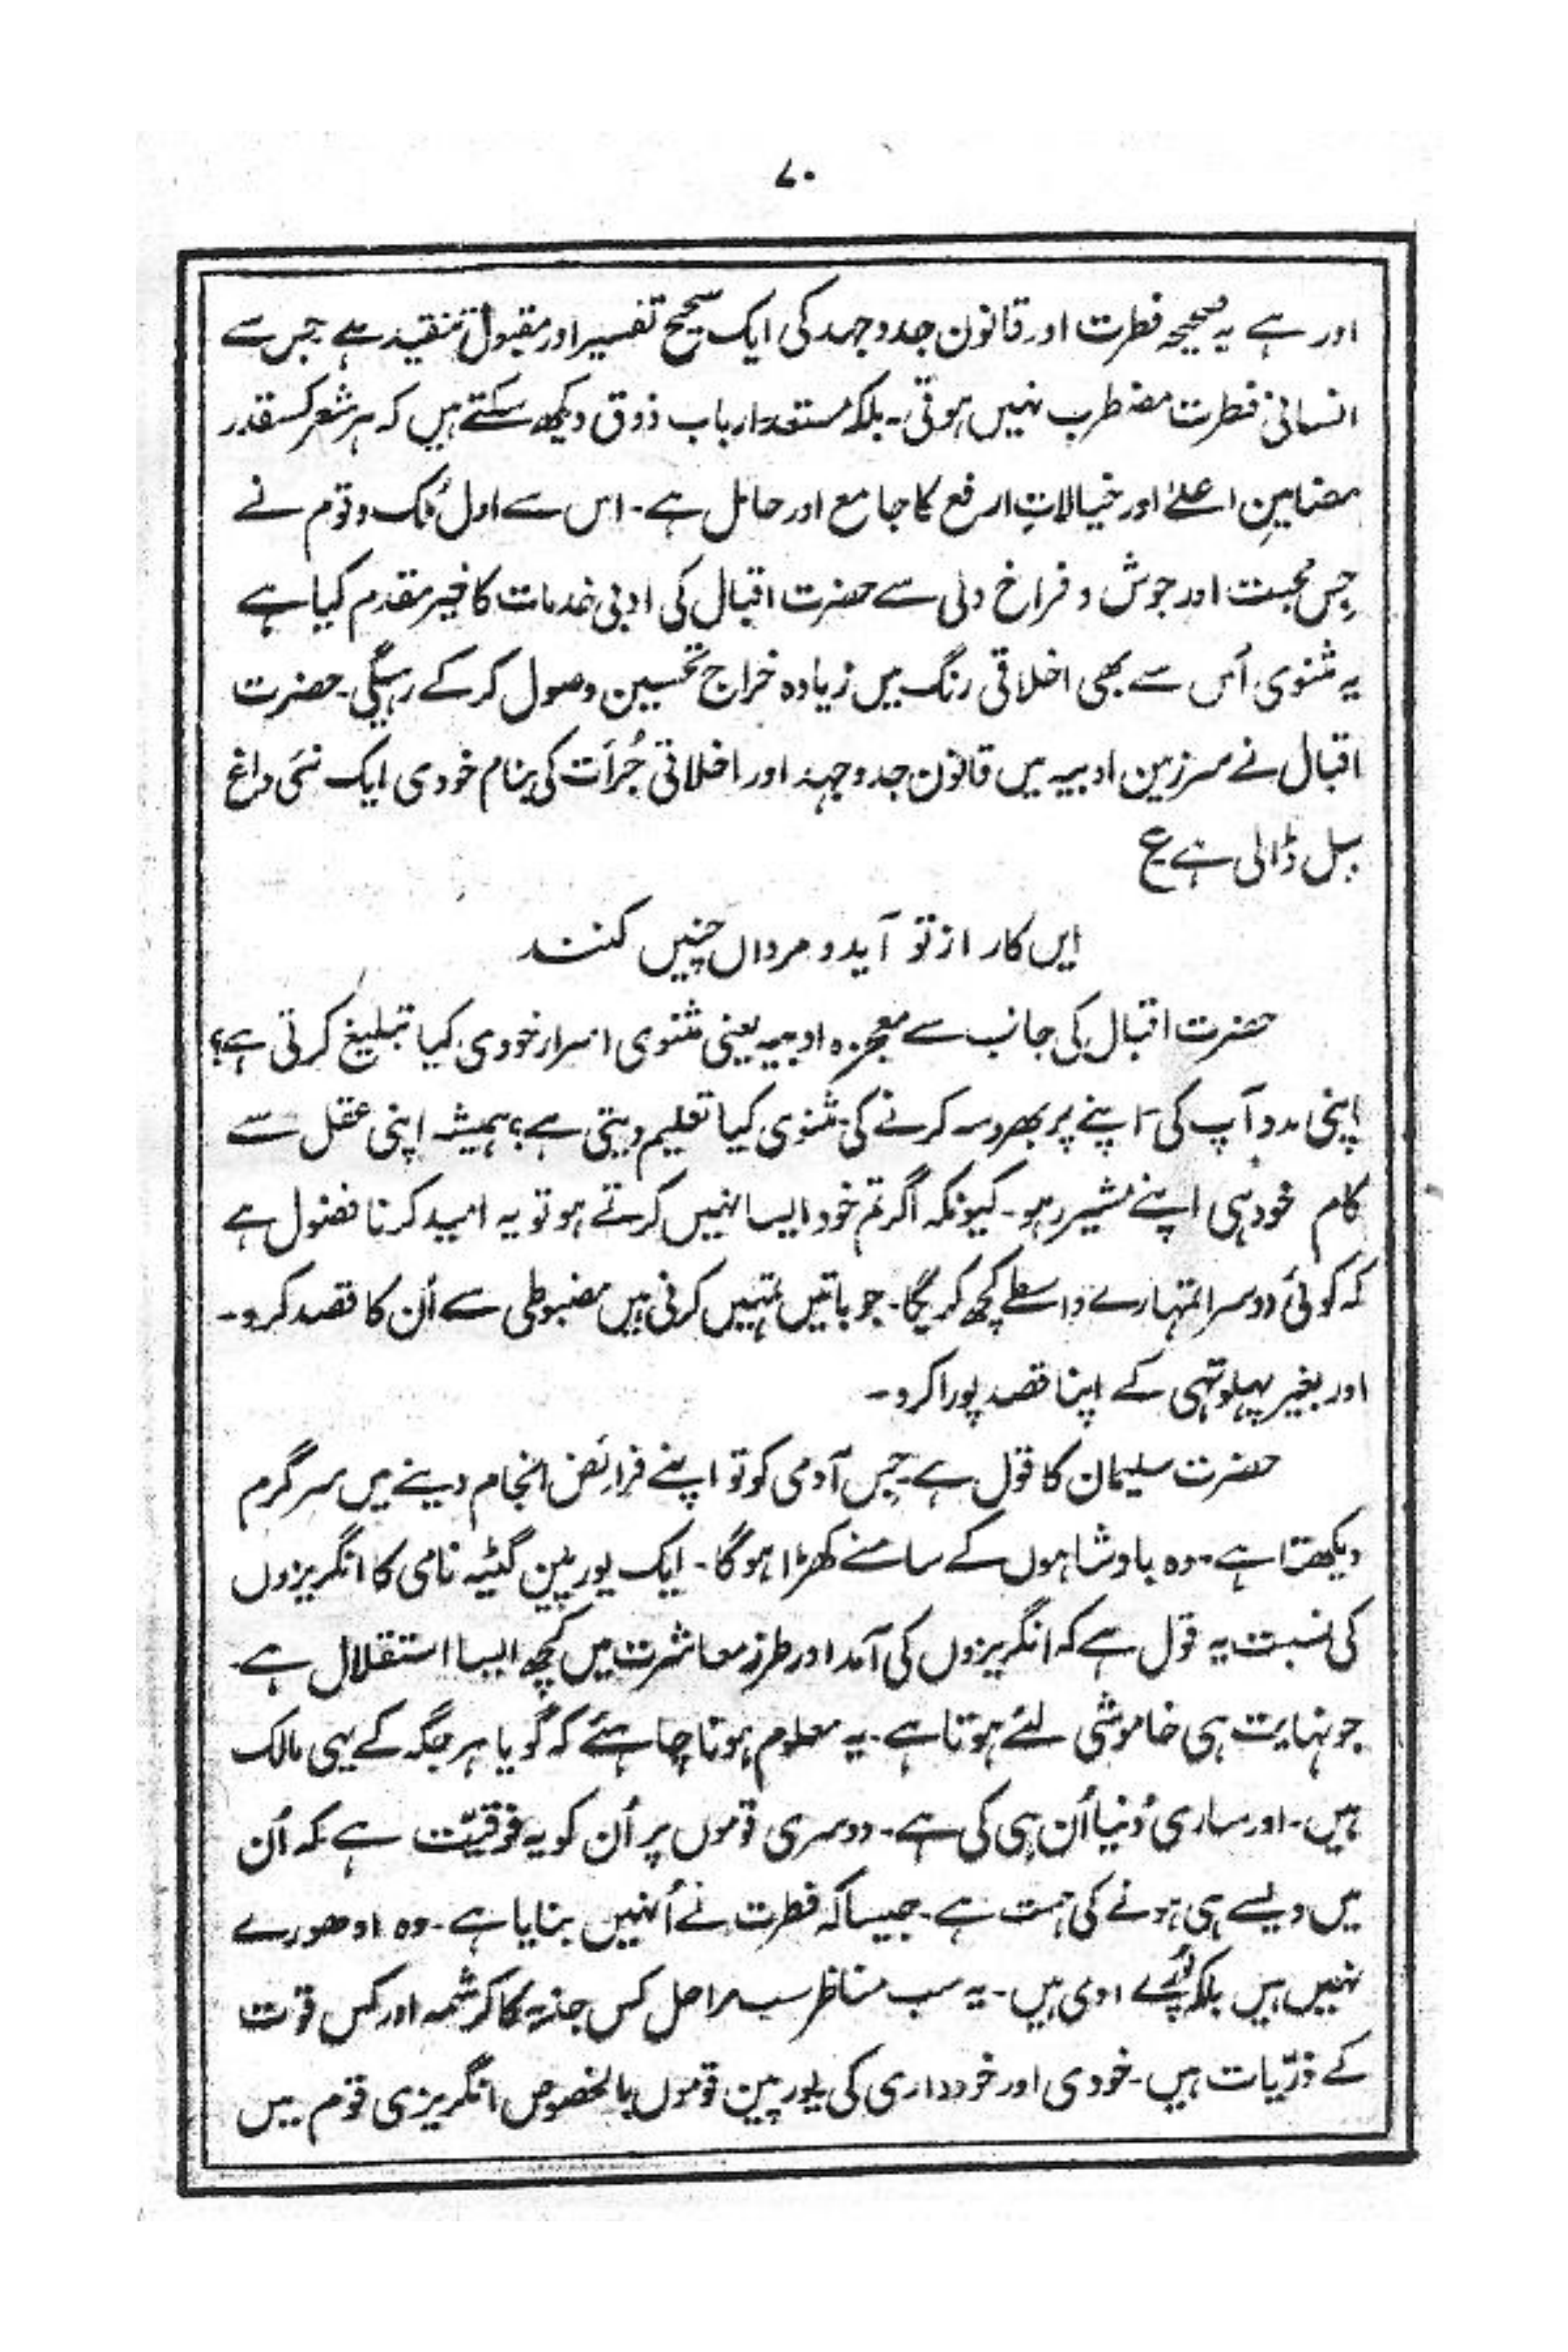 ۷۰
اور ہے یہ صحیحہ فطرت اور قانون جدوجہد کی ایک صحیح تفسیر اور مقبول تنقید ہے جس سے
انسانی فطرت مضطرب نہیں ہوتی۔ بلکہ مستعد ارباب ذوق دیکھ سکتے ہیں کہ ہر شعر کسقدر
مضامینِ اعلےٰ اور خیالاتِ ارفع کا جامع اور حامل ہے۔ اس سے اول مُلک و قوم نے
جِس محبت اور جوش و فراخ دلی سے حضرت اقبال کی ادبی خدمات کا خیر مقدم کیا ہے
یہ مثنوی اُس سے بھی اخلاقی رنگ میں زیادہ خراج تحسین وصول کر کے رہیگی۔ حضرت
اقبال نے سرزمین ادبیہ میں قانون جدوجہد اور اخلاقی جُرأت کی بنام خودی ایک نئی داغ
بیل ڈالی ہے ع
ایں کار از تو آید و مرداں چنیں کنند
حضرت اقبال کی جانب سے معجزہ ادبیہ یعنی مثنوی اسرار خودی کیا تبلیغ کرتی ہے؟
اپنی مدد آپ کی۔ اپنے پر بھروسہ کرنے کی۔ مثنوی کیا تعلیم دیتی ہے؟ ہمیشہ اپنی عقل سے
کام خود ہی اپنے مشیر رہو۔ کیونکہ اگر تم خود ایسا نہیں کرتے ہو تو یہ امید کرنا فضول ہے
کہ کوئی دوسرا تمہارے واسطے کچھ کریگا۔ جو باتیں تمہیں کرنی ہیں مضبوطی سے اُن کا قصد کرو۔
اور بغیر پہلو تہی کے اپنا قصد پورا کرو۔
حضرت سلیمان کا قول ہے۔ جس آدمی کو تو اپنے فرائض انجام دینے میں سرگرم
دیکھتا ہے۔ وہ بادشاہوں کے سامنے کھڑا ہوگا۔ ایک یورپین گٹیہ نامی کا انگریزوں
کی نسبت یہ قول ہے کہ انگریزوں کی آمد اور طرز معاشرت میں کچھ ایسا استقلال ہے
جو نہایت ہی خاموشی لئے ہوتا ہے۔ یہ معلوم ہونا چاہئے کہ گویا ہر جگہ کے یہی مالک
ہیں۔ اور ساری دُنیا اُن ہی کی ہے۔ دوسری قوموں پر اُن کو یہ فوقیّت ہے کہ اُن
میں ویسے ہی ہونے کی ہمت ہے۔ جیسا کہ فطرت نے اُنہیں بنایا ہے۔ وہ ادھورے
نہیں ہیں بلکہ پُورے ادمی ہیں۔ یہ سب مناظر مراحل کس جذبہ کا کرشمہ اور کس قوت
کے ذرّیات ہیں۔ خودی اور خودداری کی یورپین قوموں بالخصوص انگریزی قوم میں